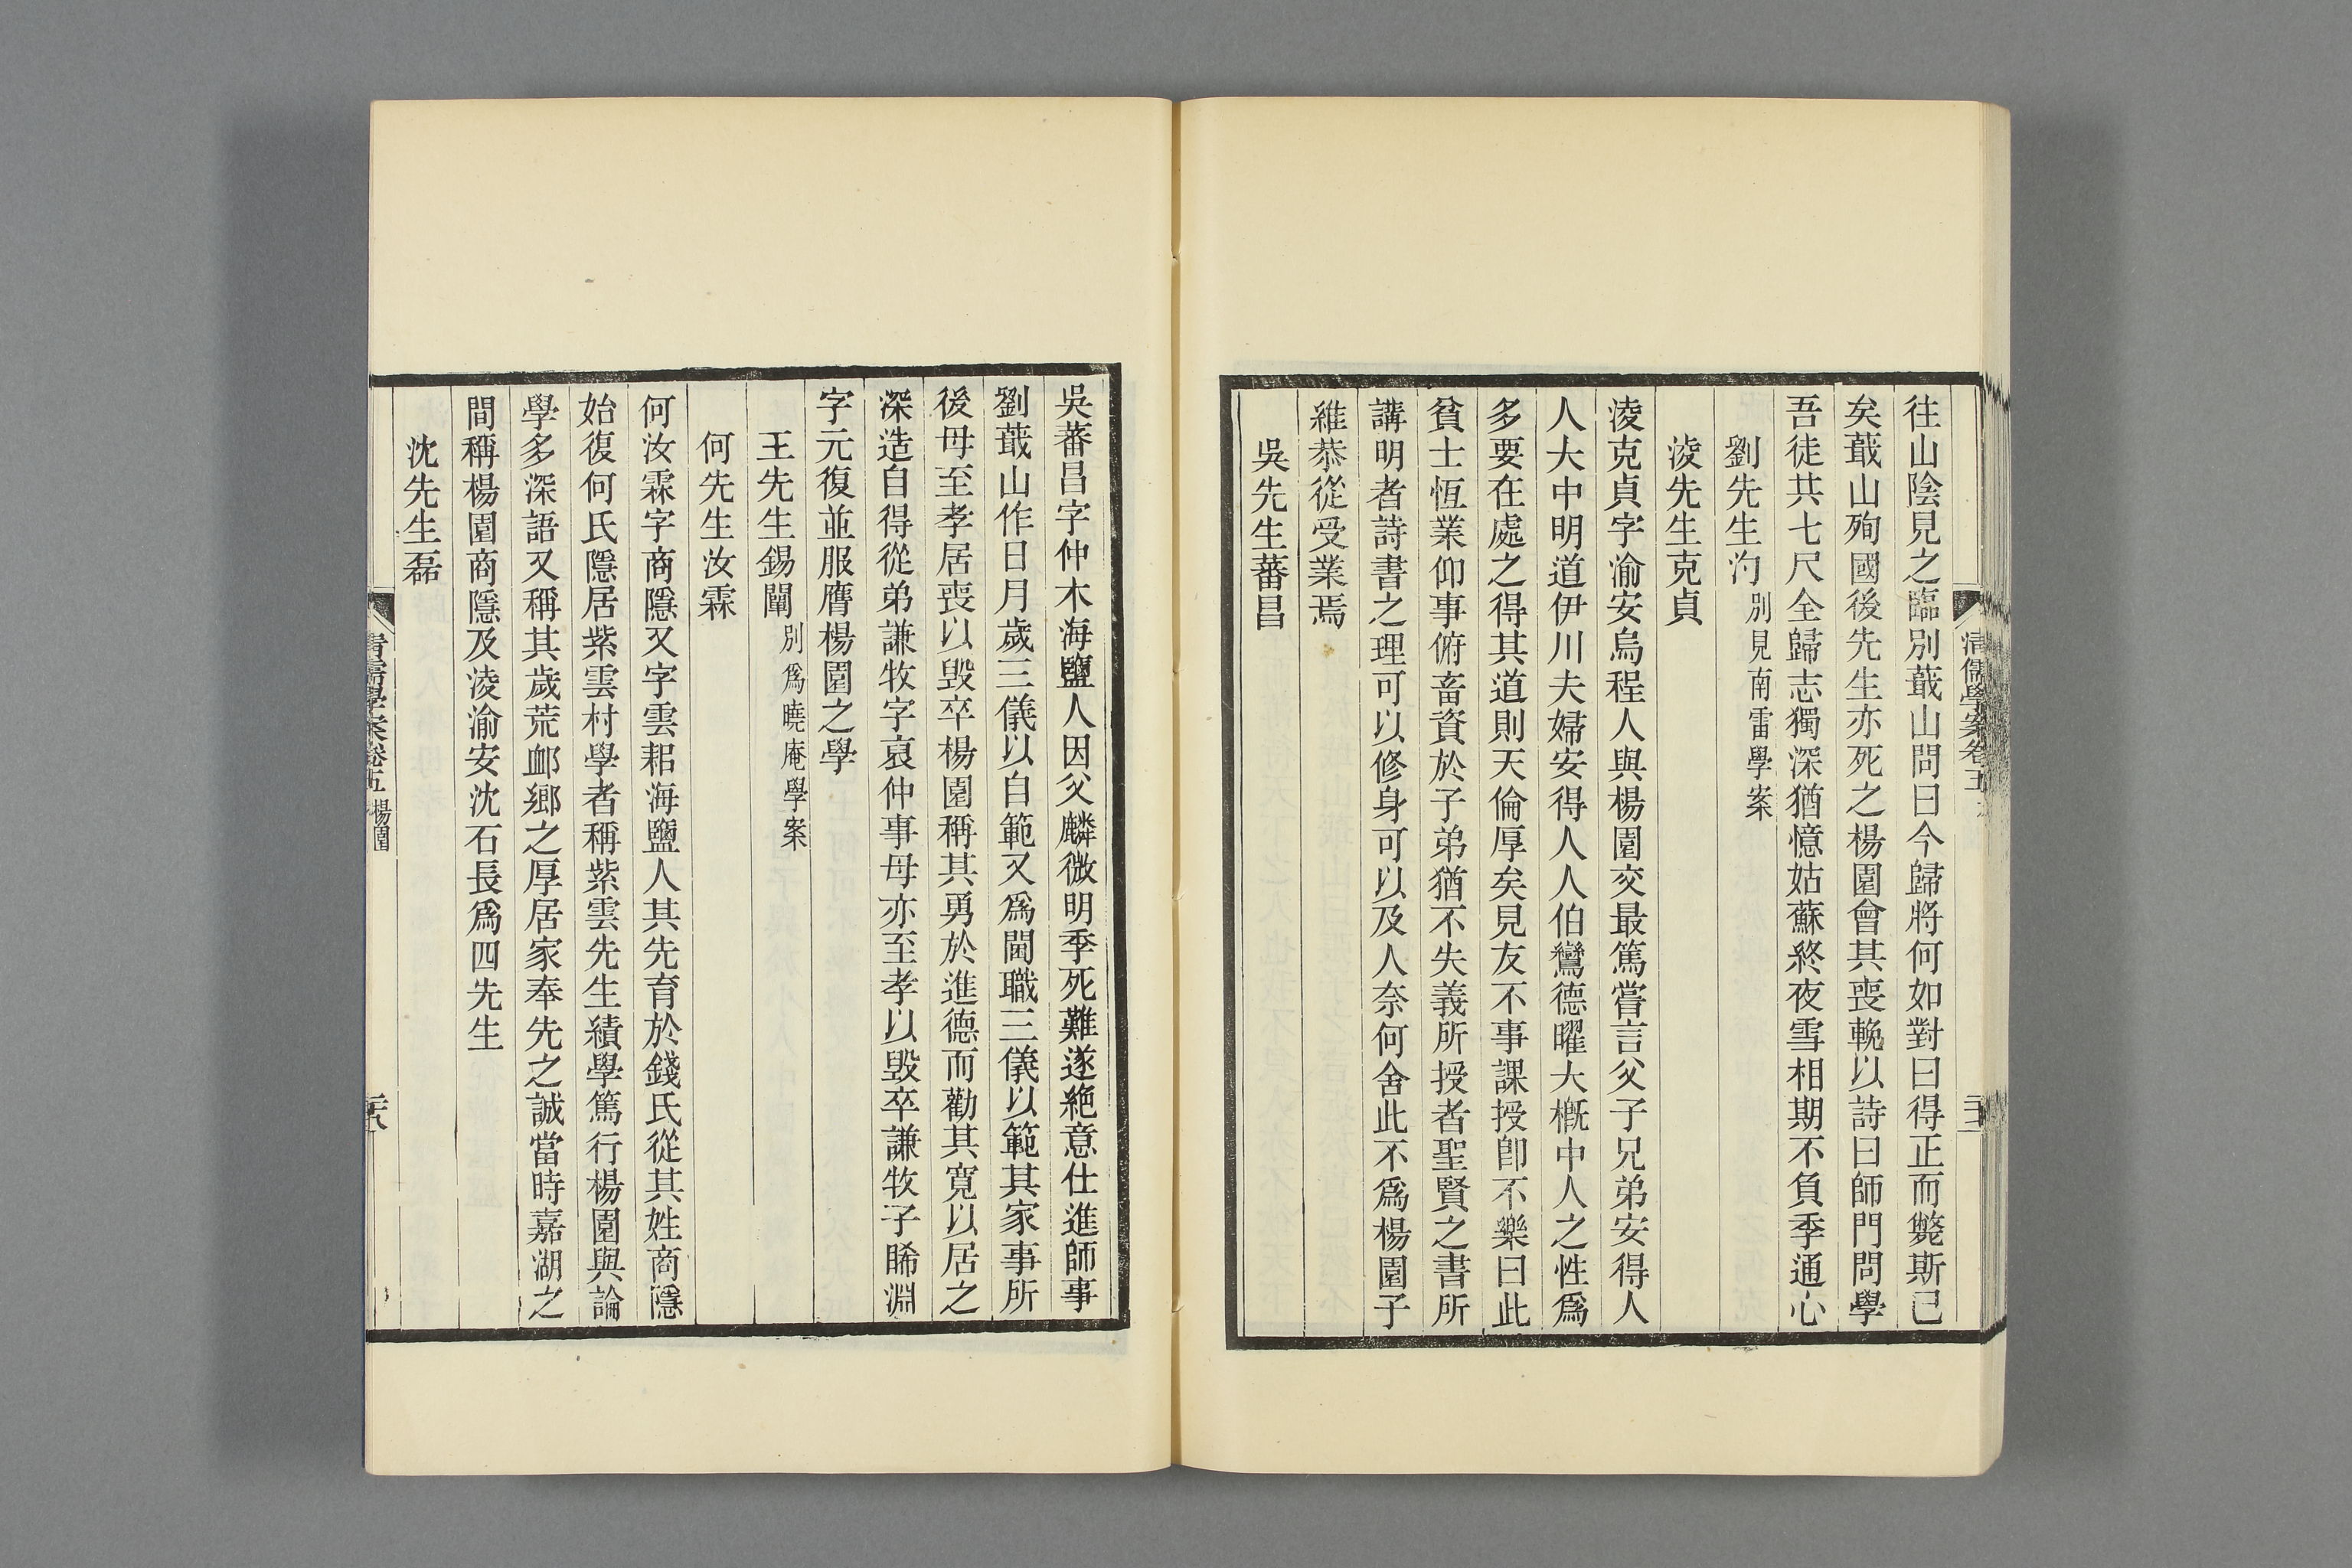 往山陰見之臨別蕺山問曰今歸將何如對曰得正而斃斯已
矣蕺山殉國後先生亦死之楊園會其喪輓以詩曰師門問學
吾徒共七尺全歸志獨深猶憶姑蘇終夜雪相期不負季通心
劉先生汋別見南雷學案
淩先生克貞
淩克貞字渝安烏程人與楊園交最篤嘗言父子兄弟安得人
人大中明道伊川夫婦安得人人伯鸞德曜大概中人之性爲
多要在處之得其道則天倫厚矣見友不事課授卽不樂曰此
貧士恆業仰事俯畜資於子弟猶不失義所授者聖賢之書所
講明者詩書之理可以修身可以及人奈何舍此不爲楊園子
維恭從受業焉
吳先生蕃昌
吳蕃昌字仲木海鹽人因父麟徵明季死難遂絕意仕進師事
劉蕺山作日月歲三儀以自範又爲閫職三儀以範其家事所
後母至孝居喪以毀卒楊園稱其勇於進德而勸其寬以居之
深造自得從弟謙牧字裒仲事母亦至孝以毀卒謙牧子睎淵
字元復並服膺楊園之學
王先生錫闡別爲曉庵學案
何先生汝霖
何汝霖字商隱又字雲耜海鹽人其先育於錢氏從其姓商隱
始復何氏隱居紫雲村學者稱紫雲先生績學篤行楊園與論
學多深語又稱其歲荒卹鄉之厚居家奉先之誠當時嘉湖之
間稱楊園商隱及淩渝安沈石長爲四先生
沈先生磊
清儒學案卷五 楊園